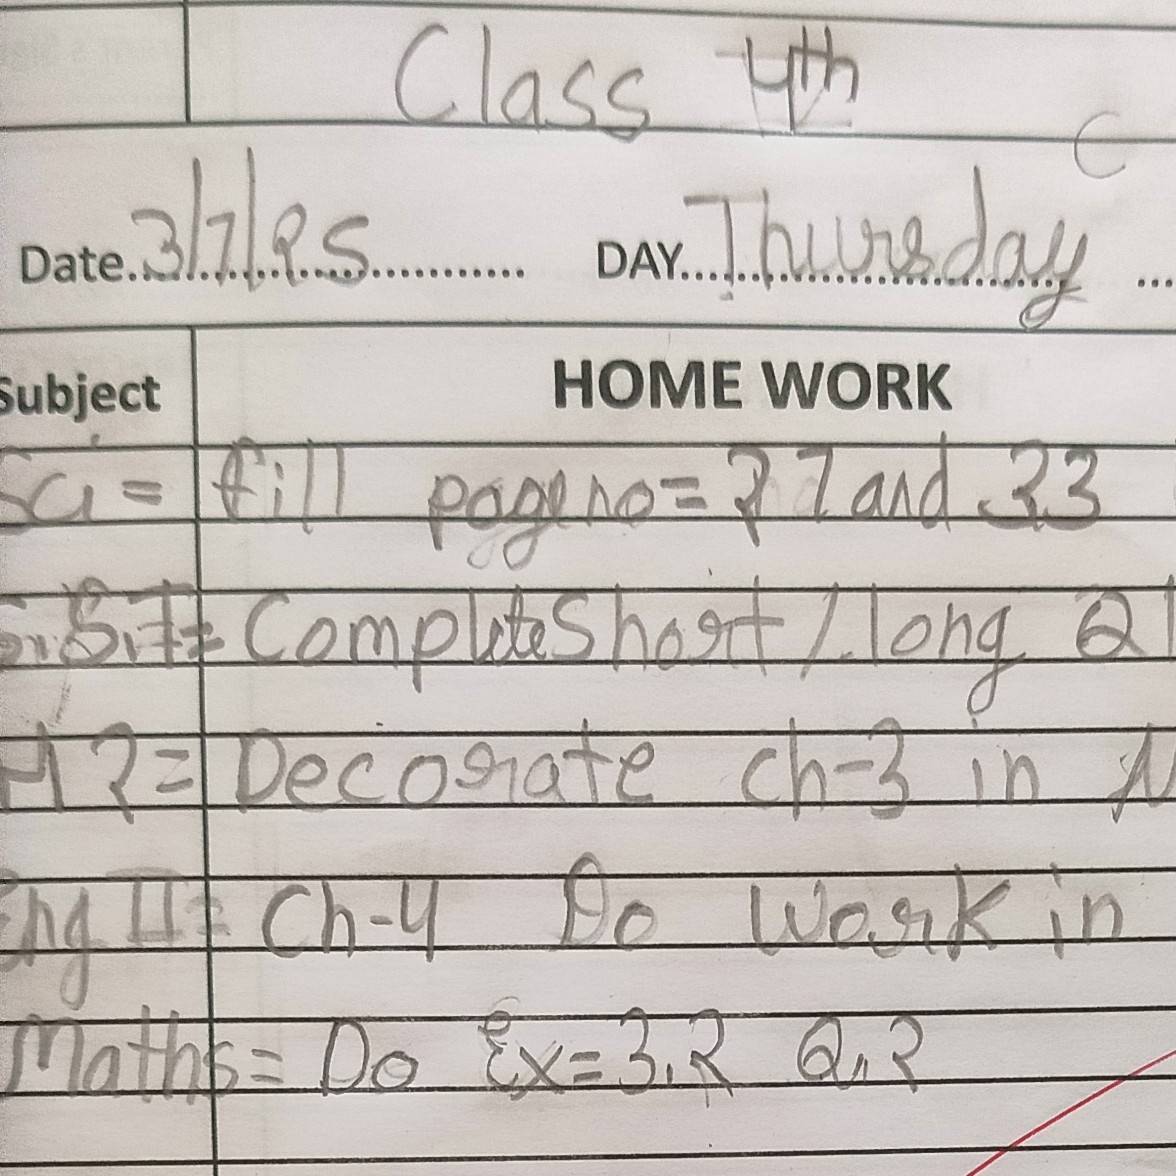 Class 4th
Date..3/7/25............ DAY...Thursday...
Subject HOME WORK
Sci = fill page no = 27 and 33
S.S.T = Complete Short / long Q
= Decorate ch-3 in
Eng II = Ch-4 Do Work in
Maths = Do Ex = 3.2 Q.2